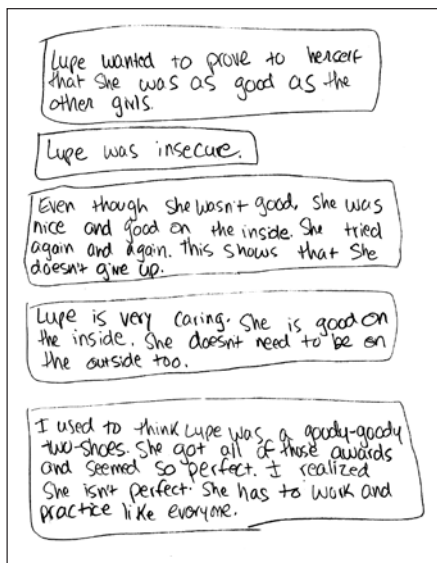 Lupe wanted to prove to herself
that she was as good as the
other girls.
Lupe was insecure.
Even though she wasn't good, she was
nice and good on the inside. She tried
again and again. This shows that she
doesn't give up.
Lupe is very caring. She is good on
the inside. She doesn't need to be on
the outside too.
I used to think Lupe was a goody-goody
two-shoes. She got all of those awards
and seemed so perfect. I realized
She isn't perfect. She has to work and
practice like everyone.